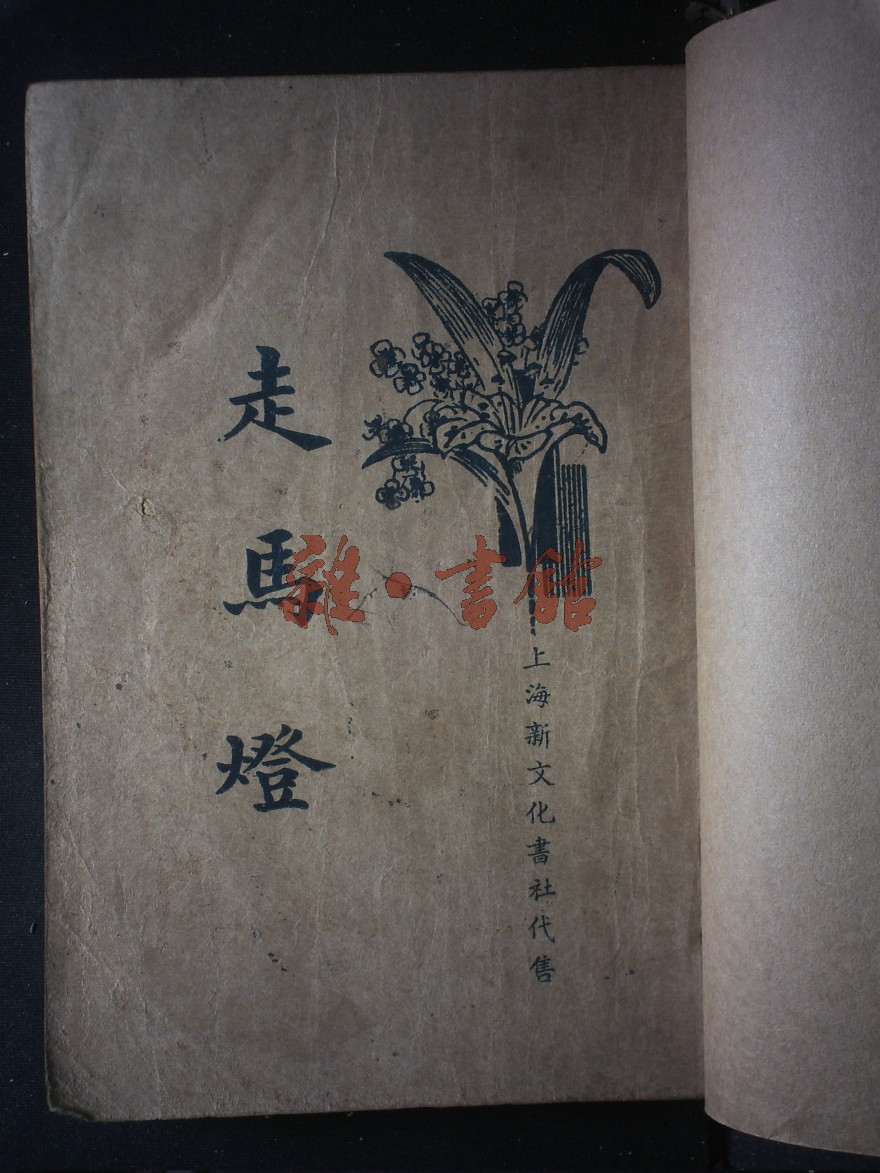 走馬燈
上海新文化書社代售
雜·書館